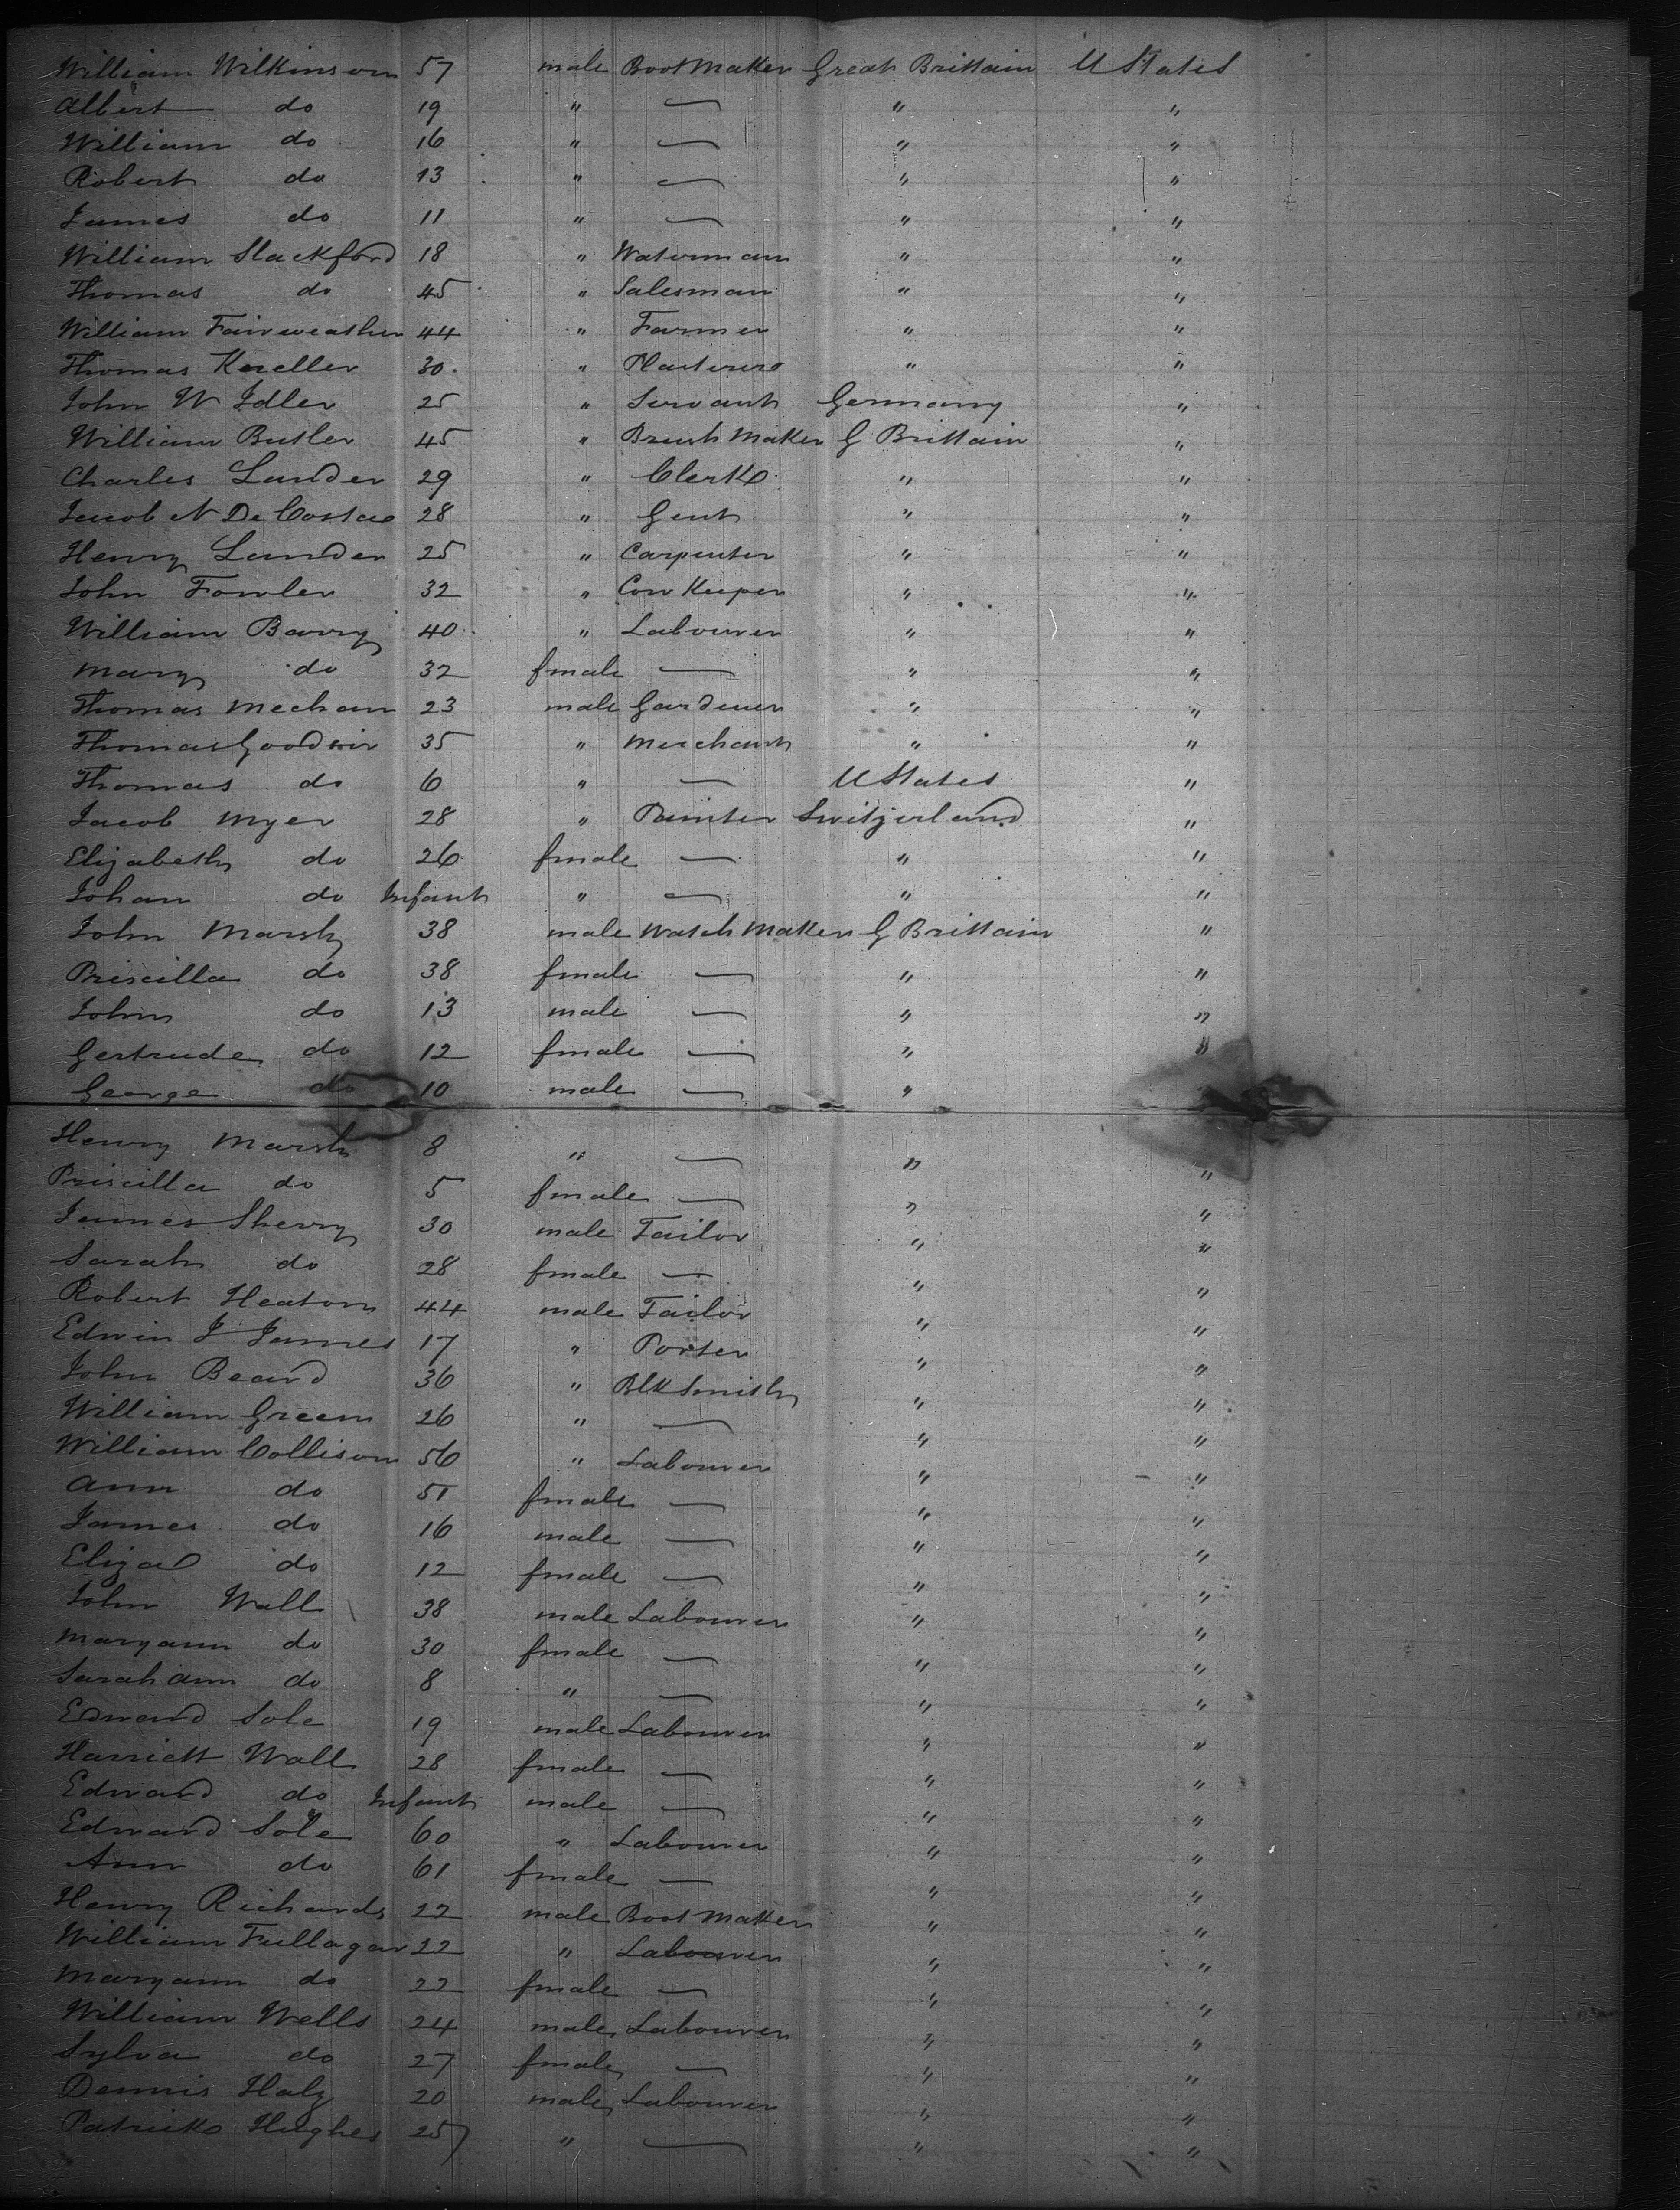 William Wilkinson 57 male Boot Maker Great Brittain U States
Albert do 19 " — " "
William do 16 " — " "
Robert do 13 " — " "
James do 11 " — " "
William Slackford 18 " Waterman " "
Thomas do 45 " Salesman " "
William Fairweather 44 " Farmer " "
Thomas Kneller 30 " Plasterer " "
John W Idler 25 " Servant Germany "
William Butler 45 " Brush Maker G Brittain "
Charles Lander 29 " Clerk " "
Jacob N De Costa 28 " Gent " "
Henry Lander 25 " Carpenter " "
John Fowler 32 " Cow Keeper " "
William Barry 40 " Labourer " "
Mary do 32 fmale — " "
Thomas Mechan 23 male Gardener " "
Thomas Goodwin 35 " Merchant " "
Thomas do 6 " — U States "
Jacob Myer 28 " Painter Switzerland "
Elizabeth do 26 fmale — " "
Johan do Infant " — " "
John Marsh 38 male Watch Maker G Brittain "
Priscilla do 38 fmale — " "
John do 13 male — " "
Gertrude do 12 fmale — " "
George do 10 male — "
Henry Marsh 8 " — " "
Priscilla do 5 fmale — " "
James Sherry 30 male Tailor " "
Sarah do 28 fmale — " "
Robert Heaton 44 male Tailor " "
Edwin J James 17 " Porter " "
John Beard 36 " Blk Smith " "
William Green 26 " — " "
William Collison 56 " Labourer " "
Ann do 51 fmale — " "
James do 16 male — " "
Eliza do 12 fmale — " "
John Wall 38 male Labourer " "
Maryann do 30 fmale — " "
Sarah Ann do 8 " — " "
Edward Sole 19 male Labourer " "
Harriett Wall 28 fmale — " "
Edward do Infant male — " "
Edward Sole 60 " Labourer " "
Ann do 61 fmale — " "
Henry Richards 22 male Boot Maker " "
William Fullagar 32 " Labourer " "
Maryann do 22 fmale — " "
William Wells 24 male Labourer " "
Sylva do 27 fmale — " "
Dennis Haly 20 male Labourer " "
Patrick Hughes 25 " — " "